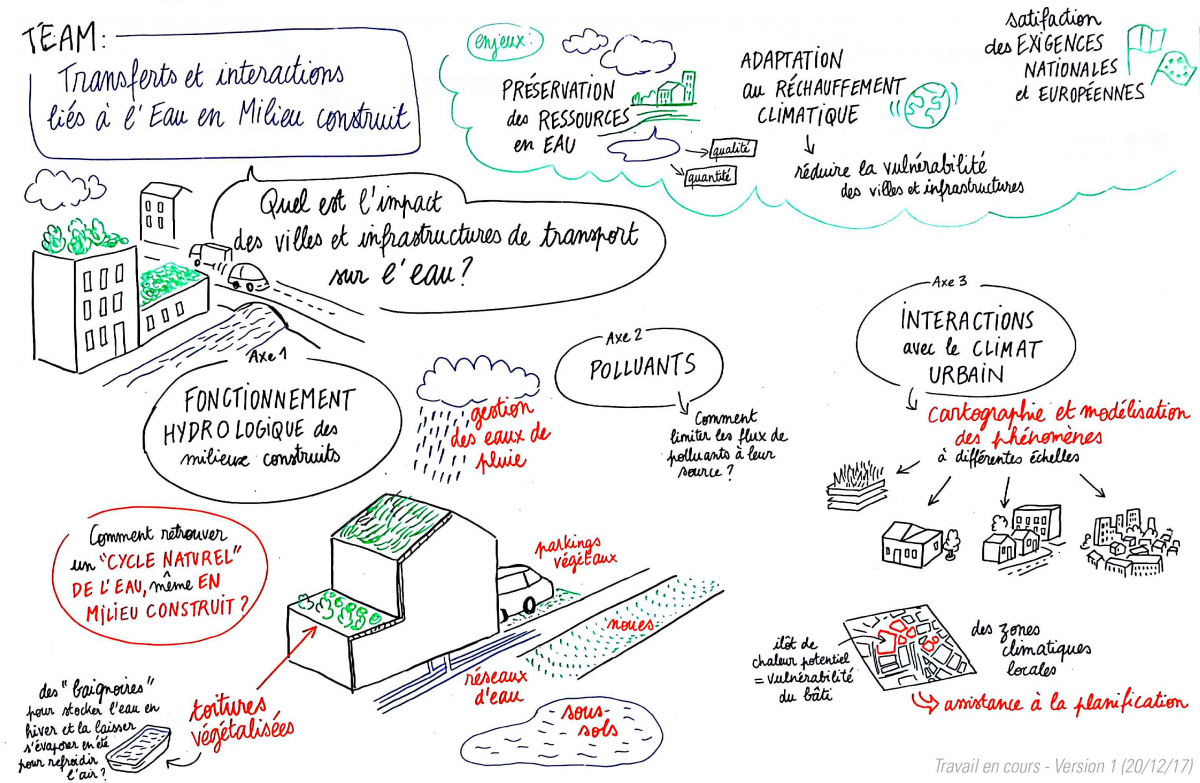 TEAM:
Transferts et interactions
liés à l'Eau en Milieu construit
enjeux:
PRÉSERVATION
des RESSOURCES
en EAU
qualité
quantité
ADAPTATION
au RÉCHAUFFEMENT
CLIMATIQUE
réduire la vulnérabilité
des villes et infrastructures
satifaction
des EXIGENCES
NATIONALES
et EUROPÉENNES
Quel est l'impact
des villes et infrastructures de transport
sur l'eau?
Axe 1
FONCTIONNEMENT
HYDROLOGIQUE des
milieux construits
gestion
des eaux de
pluie
Axe 2
POLLUANTS
Comment
limiter les flux de
polluants à leur
source?
Axe 3
INTERACTIONS
avec le CLIMAT
URBAIN
cartographie et modélisation
des phénomènes
à différentes échelles
Comment retrouver
un "CYCLE NATUREL"
DE L'EAU, même EN
MILIEU CONSTRUIT?
parkings
végétaux
noues
réseaux
d'eau
sous-
sols
toitures
végétalisées
des "baignoires"
pour stocker l'eau en
hiver et la laisser
s'évaporer en été
pour refroidir
l'air?
ilôt de
chaleur potentiel
= vulnérabilité
du bâti
des zones
climatiques
locales
assistance à la planification
Travail en cours - Version 1 (20/12/17)